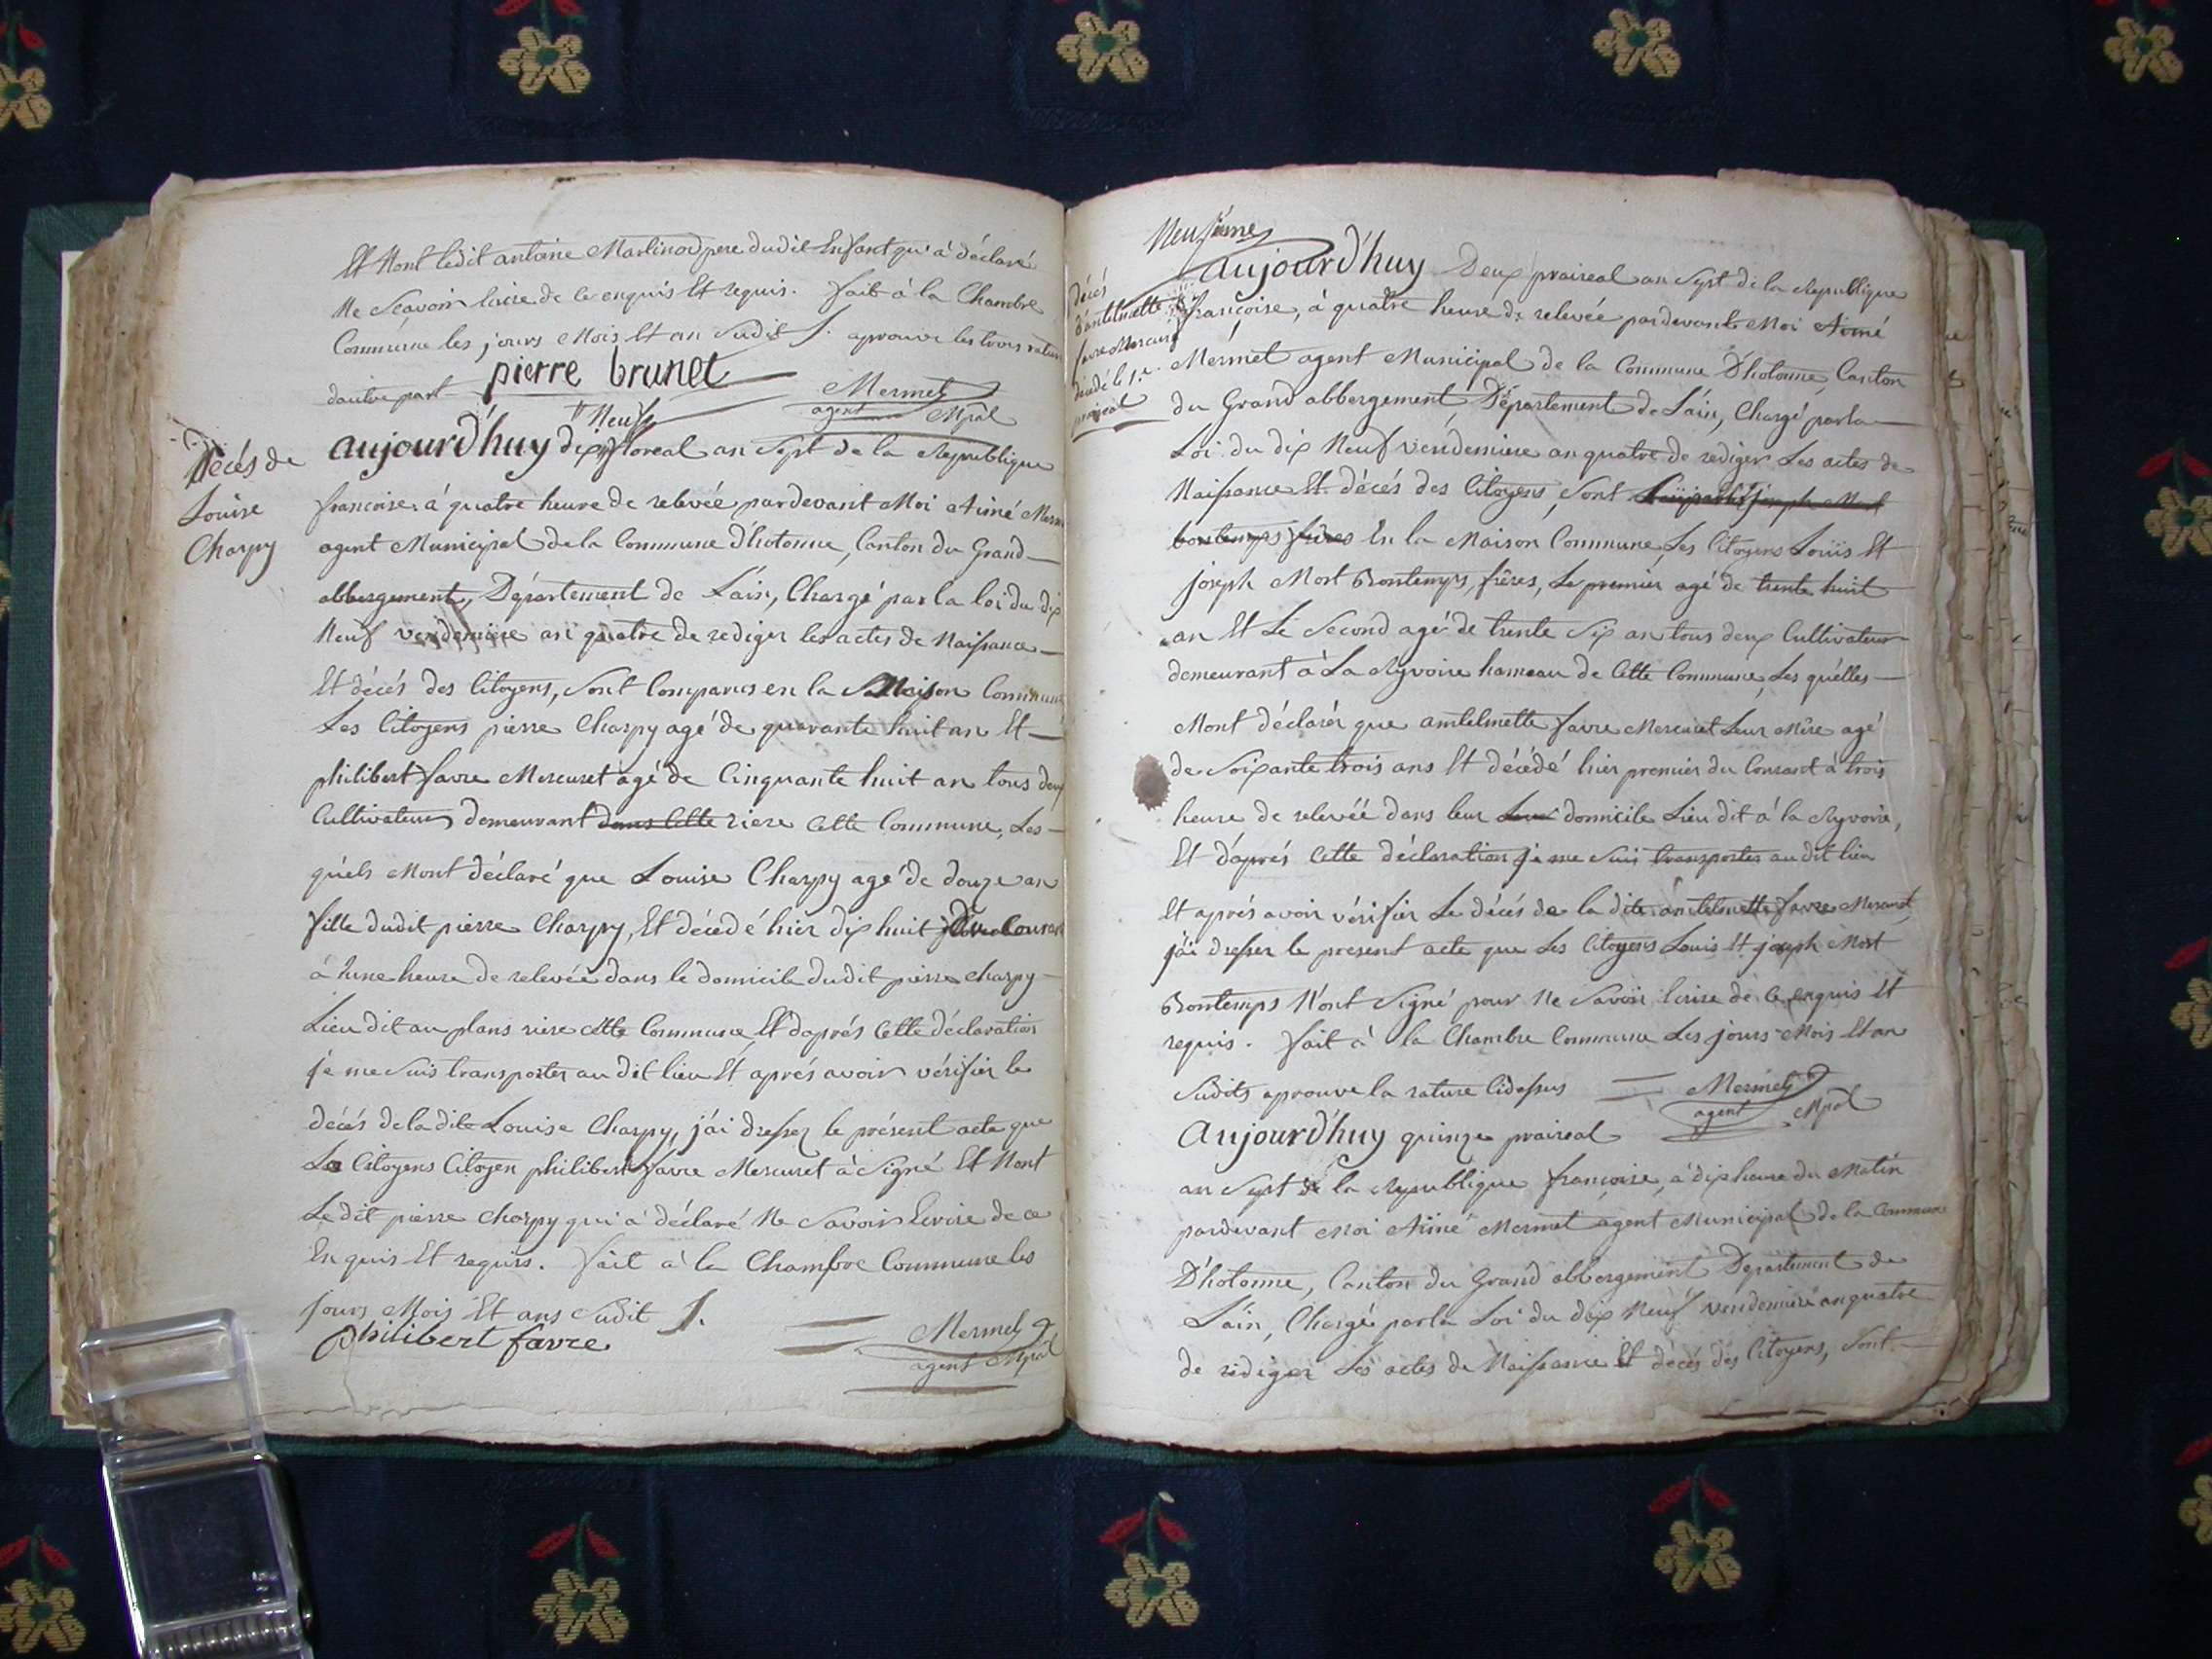 Et Nont ledit antoine Martinod pere dudit Enfant qui a déclaré
Ne Sçavoir Ecrire de ce enquis Et requis. fait à la Chambre
Commune les jours Mois Et an Sudit f. aprouve les trois rature
dautre part pierre brunet
Mermet
agent Mpal
Décés de
Louise
Charpy
Neuf
aujourd'huy dix floreal an Sept de la Republique
francoise, à quatre heure de relevée pardevant Moi Aimé Merm
agent Municipal de la Commune D'hotonne, Canton du Grand
abbergement, Département de L'ain, Chargé par la loi du dix
Neuf vendemiere an quatre de rediger les actes de Naissance
Et décés des Citoyens, Sont Comparus en la Maison Commune
Les Citoyens pierre Charpy agé de quarante huit an Et
philibert favre Mercuret agé de Cinquante huit an tous deux
Cultivateurs demeurant dans Cette riere Cette Commune, Les
quels Mont déclaré que Louise Charpy agé de douze an
fille dudit pierre Charpy, Et décédé hier dix huit du Courant
à Une heure de relevée dans le domicile dudit pierre Charpy
Lieu dit au plans riere cette Commune Et d'aprés Cette déclaration
je me Suis transporter au dit lieu Et aprés avoir vérifier le
décés de la dite Louise Charpy, j'ai dresser le présent acte que
Le Citoyens Citoyen philibert favre Mercuret à Signé Et Nont
Le dit pierre Charpy qui a déclaré Ne Savoir Ecrire de ce
Enquis Et requis. fait à la Chambre Commune les
jours Mois Et ans Sudit f.
Philibert favre
Mermet
agent Mpal
Neufiéme
décés
d'antelmette
favre Mercuret
décédé le 1.er
prairéal
aujourd'huy Deux prairéal an Sept de la Republique
françoise, à quatre heure de relevée pardevant Moi Aimé
Mermet agent Municipal de la Commune D'hotonne, Canton
du Grand abbergement, Département de L'ain, Chargé par la
Loi du dix Neuf vendemiere an quatre de rediger Les actes de
Naissance Et décés des Citoyens, Sont joseph Mort
bontemps freres En la Maison Commune, Les Citoyens Loüis Et
joseph Mort Bontemps, frères, Le premier agé de trente huit
an Et Le Second agé de trente Six an tous deux Cultivateur
demeurant à La Ryvoire hameau de Cette Commune, Les quélles
Mont déclarér que antelmette favre Mercuret Leur Mère agé
de Soixante trois ans Et décédé hier premier du Courant à trois
heure de relevée dans leur Leur domicile Lieu dit à la Ryvoire,
Et d'aprés Cette déclaration je me Suis transporter au dit lieu
Et aprés avoir vérifier Le décés de la dite antelmette favre Mercuret,
j'ai dresser le present acte que Les Citoyens Louis Et joseph Mort
Bontemps N'ont Signé pour Ne Savoir Ecrire de Ce enquis Et
requis. fait à la Chambre Commune Les jours Mois Et an
Sudits aprouve la rature Cidessus
Mermet
agent Mpal
Aujourd'huy quinze prairéal
an Sept de la Republique francoise, à dix heure du Matin
pardevant Moi Aimé Mermet agent Municipal de la Commune
D'hotonne, Canton du Grand abbergement Département de
L'ain, Chargé par la Loi du dix Neuf vendemiere an quatre
de rédiger Les actes de Naissance Et décés des Citoyens, Sont